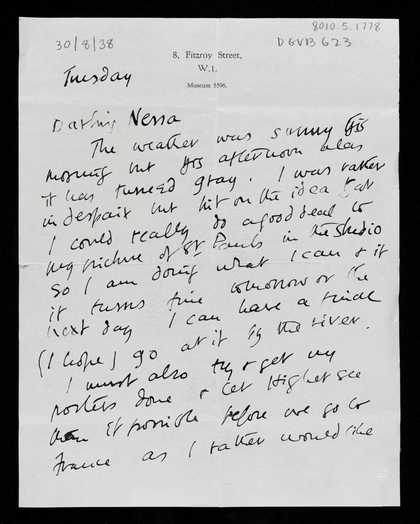 8010.5.1778
30/8/38
DGVB 623
8, Fitzroy Street,
W.1.
Museum 5596.
Tuesday
Darling Nessa
The weather was sunny this
morning but this afternoon alas
it has turned gray. I was rather
in despair but hit on the idea that
I could really do a good deal to
my picture of St Pauls in the studio
So I am doing what I can & if
it turns fine tomorrow or the
next day I can have a final
(I hope) go at it by the river.
I must also try & get my
posters done & let Higher see
them if possible before we go to
France as I rather would like